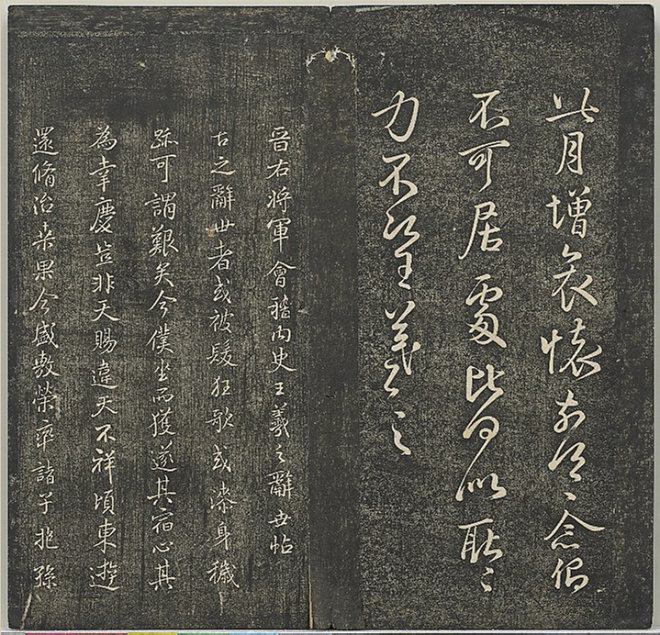 此月增哀懷念
不可居處比何似耿〻
力不次王羲之
晉右將軍會稽內史王羲之辭世帖
古之辭世者或被髮狂歌或漆身穢
跡可謂艱矣今僕坐而獲遂其宿心其
為幸慶豈非天賜違天不祥頃東遊
還脩治桑果今盛敷榮率諸子抱孫